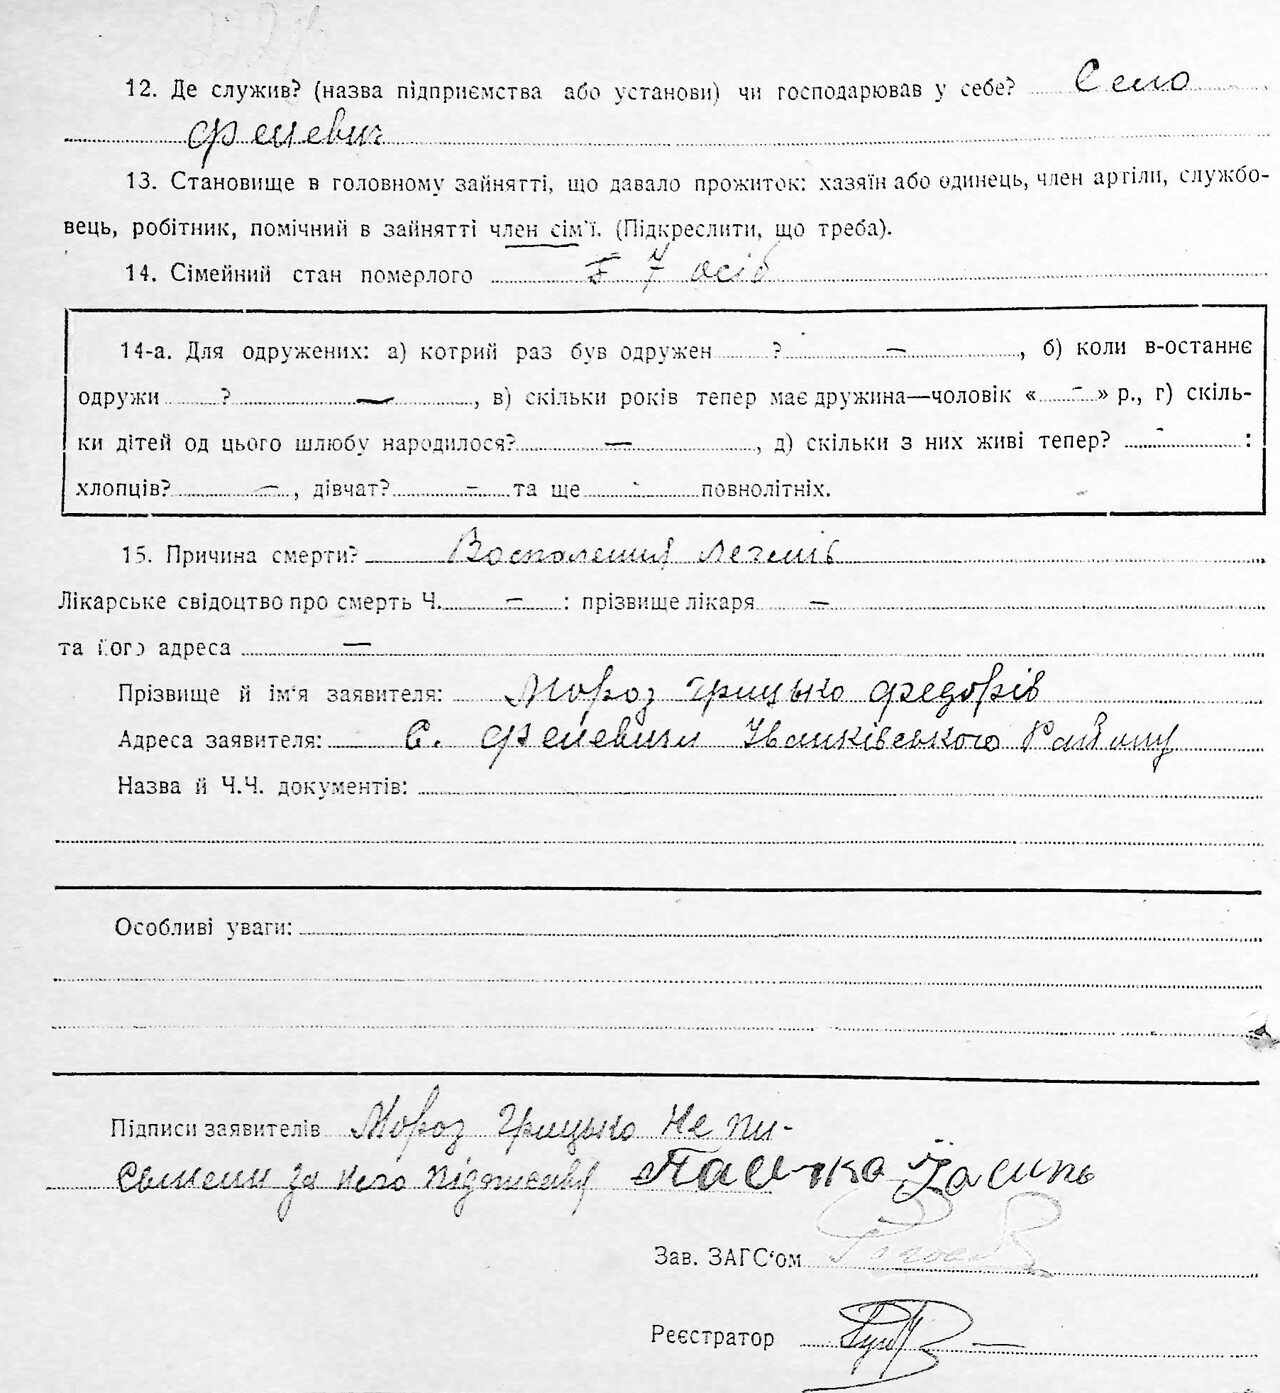 12. Де служив? (назва підприємства або установи) чи господарював у себе? Село
Феневич
13. Становище в головному зайнятті, що давало прожиток: хазяїн або одинець, член артіли, службо-
вець, робітник, помічний в зайнятті член сім'ї. (Підкреслити, що треба).
14. Сімейний стан померлого 7 осіб
14-а. Для одружених: а) котрий раз був одружен ? —, б) коли в-останнє
одружи ? —, в) скільки років тепер має дружина—чоловік « - » р., г) скіль-
ки дітей од цього шлюбу народилося? —, д) скільки з них живі тепер? - :
хлопців? —, дівчат? - та ще - повнолітніх.
15. Причина смерти? Воспаления легенів
Лікарське свідоцтво про смерть Ч. — : прізвище лікаря —
та його адреса —
Прізвище й ім'я заявителя: Мороз Грицько Федорів
Адреса заявителя: С. Феневичи Іванківського Району
Назва й Ч.Ч. документів:
Особливі уваги:
Підписи заявителів Мороз Грицько Не пи-
сьмени за него підписався
Зав. ЗАГС'ом
Реєстратор